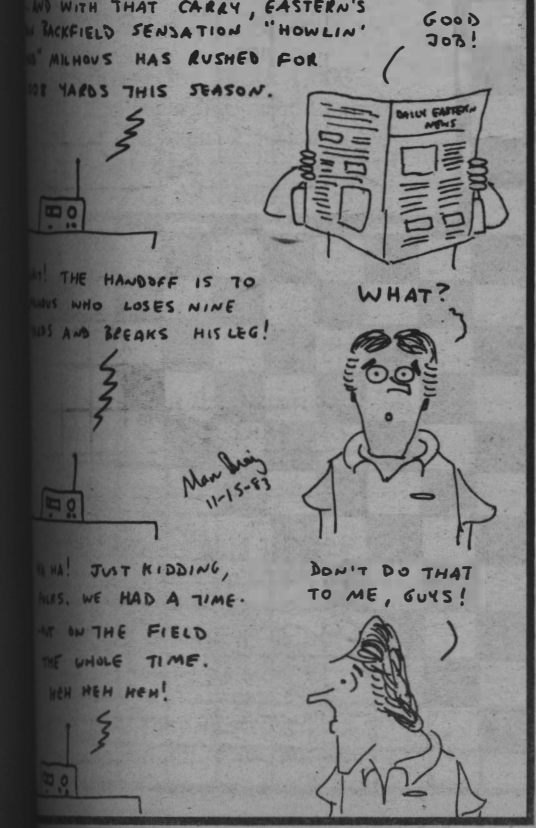 AND WITH THAT CARRY, EASTERN'S
BACKFIELD SENSATION "HOWLIN'
MILHOUS HAS RUSHED FOR
YARDS THIS SEASON.
GOOD
JOB!
DAILY EASTERN
NEWS
THE HANDOFF IS TO
WHO LOSES NINE
AND BREAKS HIS LEG!
WHAT?
11-15-83
HA! JUST KIDDING,
WE HAD A TIME-
ON THE FIELD
THE WHOLE TIME.
HEH HEH HEH!
DON'T DO THAT
TO ME, GUYS!